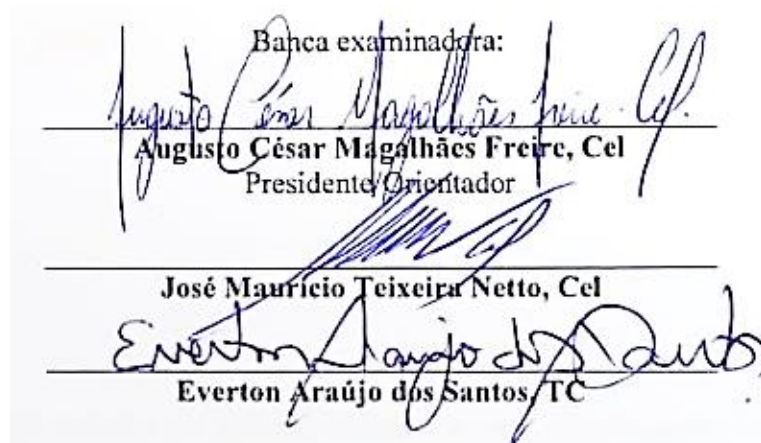 Banca examinadora:
Augusto César Magalhães Freire - Cel.
Augusto César Magalhães Freire, Cel
Presidente/Orientador
Cel
José Maurício Teixeira Netto, Cel
Everton Araujo dos Santos
Everton Araújo dos Santos, TC